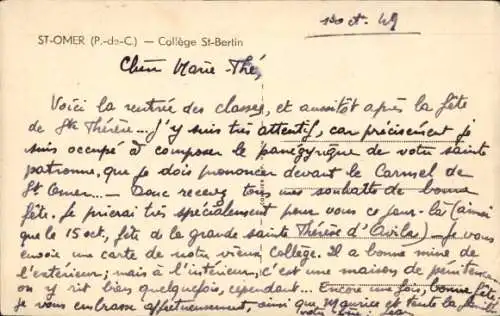 1 oct. 49
ST-OMER (P.-de-C.) — Collège St-Bertin
Chère Marie-Thé,
Voici la rentrée des classes, et aussitôt après la fête
de Ste Thérèse... J'y suis très attentif, car précisément je
suis occupé à composer le panégyrique de votre sainte
patronne, que je dois prononcer devant le Carmel de
St Omer... — Donc recevez tous mes souhaits de bonne
fête. Je prierai très spécialement pour vous ce jour-là (ainsi
que le 15 oct, fête de la grande sainte Thérèse d'Avila) — Je vous
envoie une carte de notre vieux collège. Il a bonne mine de
l'extérieur; mais à l'intérieur, c'est une maison de pénitence
on y rit bien quelquefois, cependant... Encore une fois, bonne fête,
je vous embrasse affectueusement, ainsi que Maurice et toute la famille
votre Jean